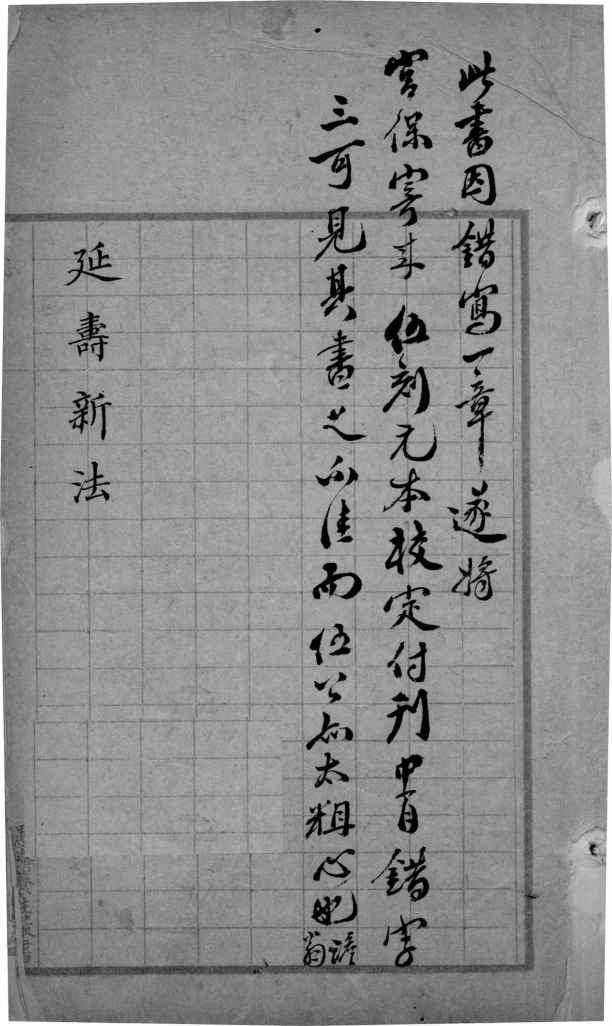 此書因錯寫一章遂將
宮保寄来伍刻元本校定付刊中有錯字
三可見其書之不佳而伍公亦太粗心也
譫翁
延壽新法